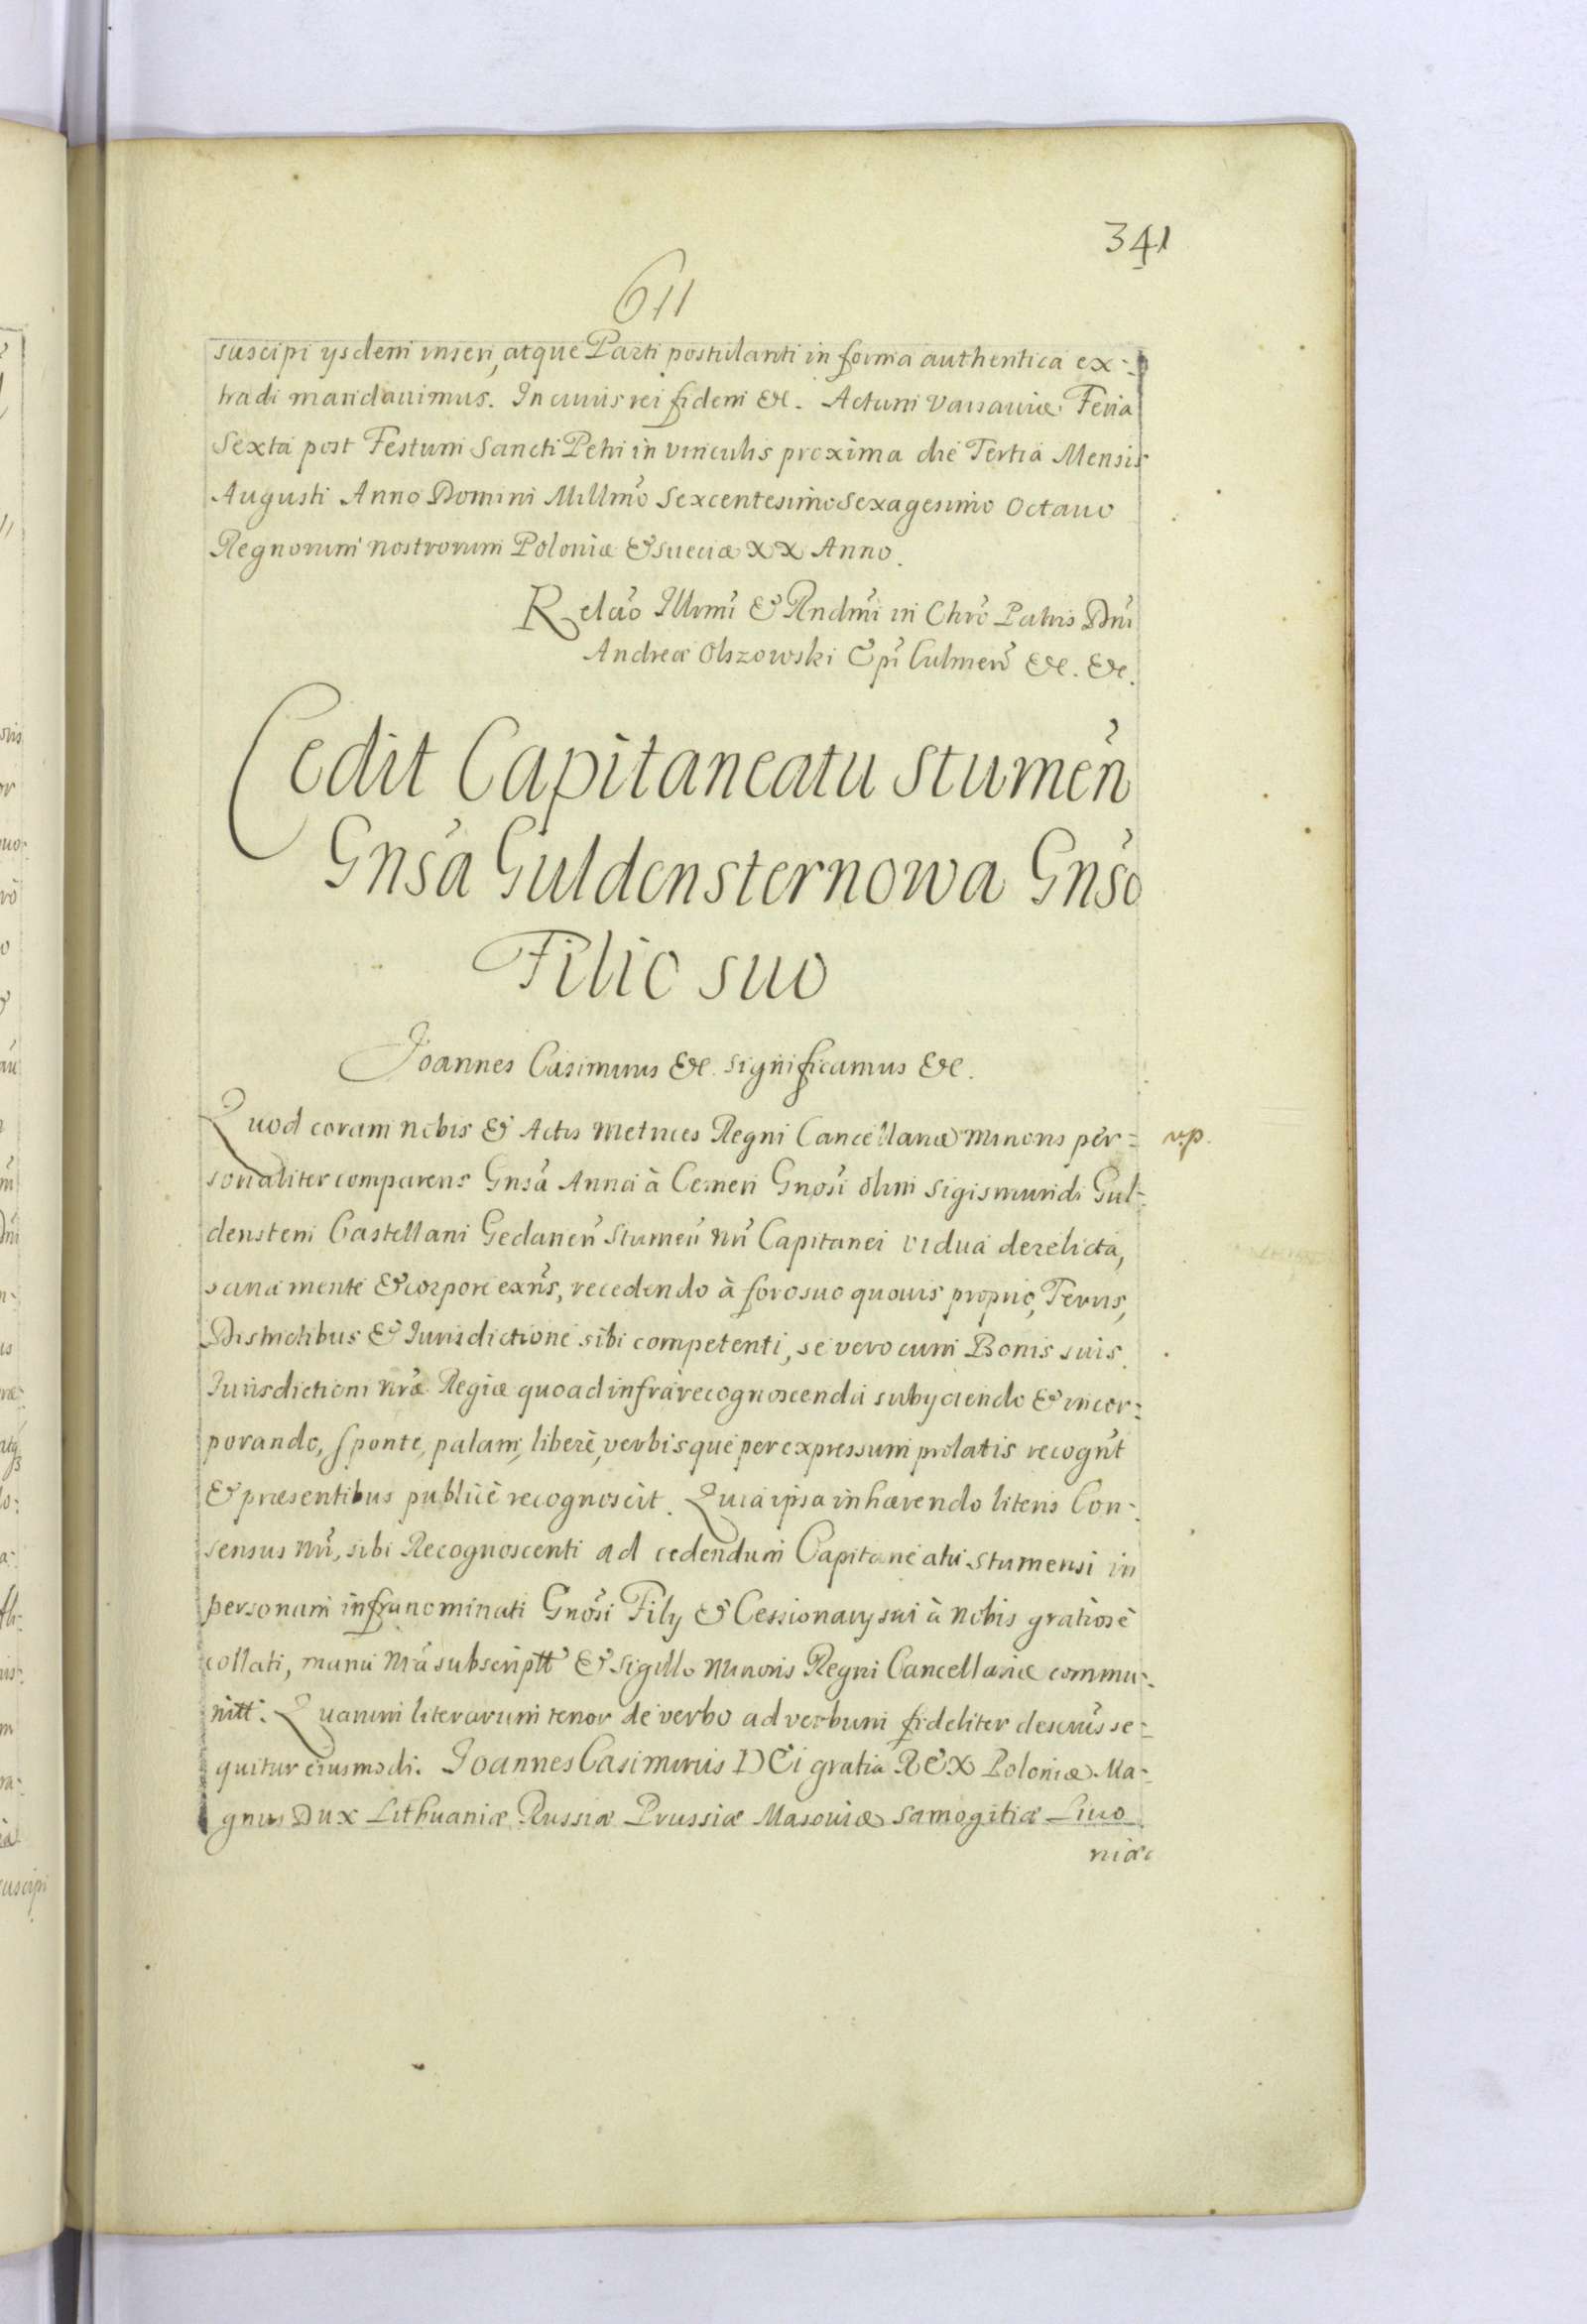 341
611
suscipi ijsdem inseri, atque Parti postulanti in forma authentica ex-
tradi mandauimus. In cuius rei fidem &c. Actum Varsauiæ Feria
Sexta post Festum Sancti Petri in vinculis proxima die Tertia Mensis
Augusti Anno Domini Millmo Sexcentesimo Sexagesimo Octauo
Regnorum nostrorum Poloniæ & Sueciæ XX Anno.
Relao Illrmi & Rndmi in Chro Patris Dni
Andreæ Olszowski Epi Culmen &c. &c.
Cedit Capitaneatu Stumen
Gnsa Guldensternowa Gnso
Filio suo
Joannes Casimirus &c. significamus &c.
Quod coram nobis & Actis Metrices Regni Cancellariæ minoris per-
vp.
sonaliter comparens Gnsa Anna à Cemeri Gnosi olim Sigismundi Gul-
densterni Castellani Gedanen Stumen nri Capitanei vidua derelicta,
sana mente & corpore exns, recedendo à foro suo quouis proprio, Terris,
Districtibus & Iurisdictione sibi competenti, se vero cum Bonis suis
Iurisdictioni nræ Regiæ quoad infrà recognoscenda subijciendo & incor-
porando, sponte, palam, liberè, verbisque per expressum prolatis recognt
& præsentibus publicè recognoscit. Quia ipsa inhærendo literis Con-
sensus nri, sibi Recognoscenti ad cedendum Capitaneatu Stumensi in
personam infranominati Gnosi Filij & Cessionarij sui à nobis gratiosè
collati, manu nra subscriptt & Sigillo Minoris Regni Cancellariæ commu-
nitt. Quarum literarum tenor de verbo ad verbum fideliter descriptus se-
quitur eiusmodi. Joannes Casimirus DEi gratia REX Poloniæ Ma-
gnus Dux Lithuaniæ Russiæ Prussiæ Masouiæ Samogitiæ Liuo
niæ